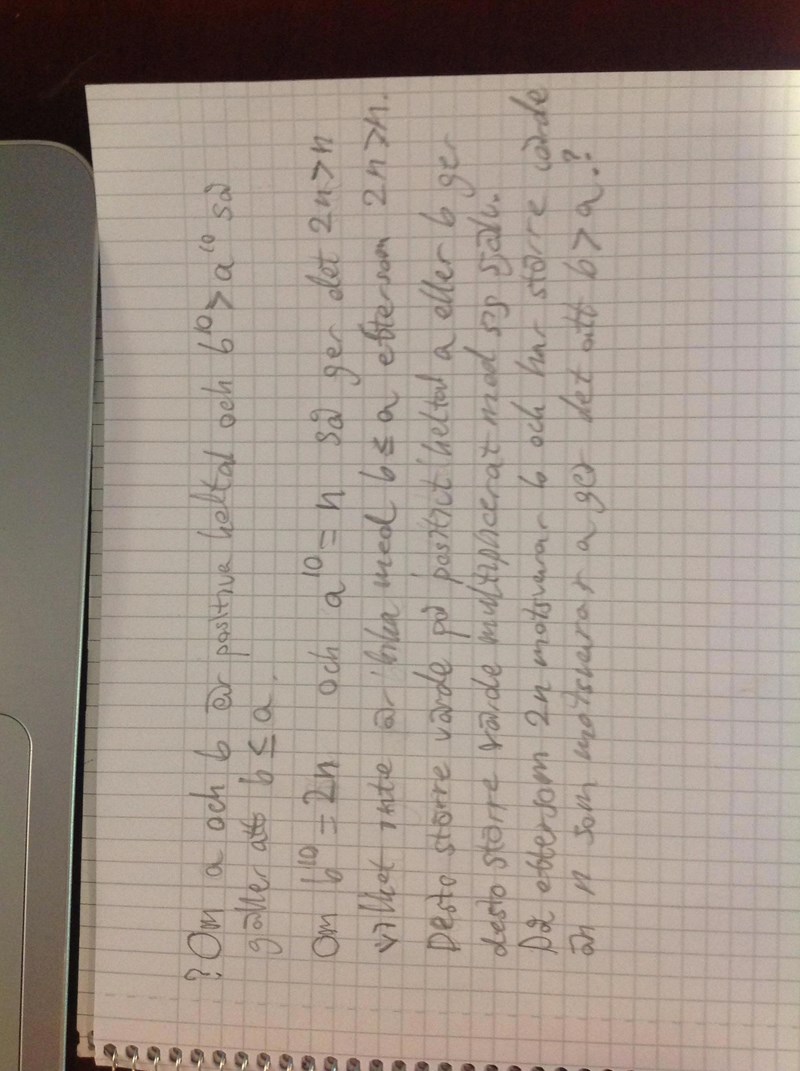 ? Om a och b är positiva heltal och b¹⁰ > a¹⁰ så
gäller att b ≤ a.
Om b¹⁰ = 2n och a¹⁰ = n så ger det 2n > n
vilket inte är lika med b ≤ a eftersom 2n > n.
Desto större värde på positivt heltal a eller b ger
desto större värde multiplicerat med sig själv.
Då eftersom 2n motsvarar b och har större värde
än n som motsvarar a ger det att b > a.?